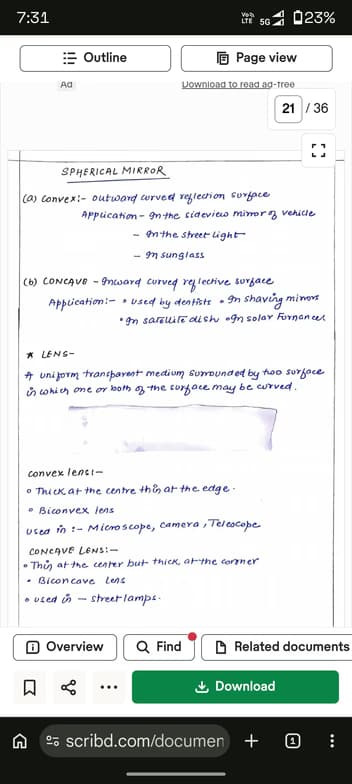 7:31
Vo)) LTE 5G 23%
Outline
Page view
Ad
Download to read ad-free
21 / 36
SPHERICAL MIRROR
(a) Convex:- outward curved reflection surface
Application - In the sideview mirror of vehicle
- In the street light
- In sunglass
(b) CONCAVE - Inward curved reflective surface
Application:- • used by dentists • In shaving mirrors
• In satellite dish • In solar Furnances
* LENS-
A uniform transparent medium surrounded by two surface
in which one or both of the surface may be curved.
convex lens:-
• Thick at the centre thin at the edge.
• Biconvex lens
used in :- Microscope, camera, Telescope
CONCAVE LENS:-
• Thin at the center but thick at the corner
• Biconcave lens
• used in - street lamps.
Overview
Find
Related documents
Download
scribd.com/documen
1